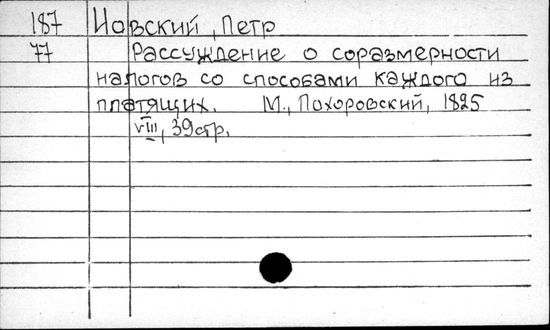 187 Иовский, Петр
77 Рассуждение о соразмерности
налогов со способами каждого из
платящих. М., Похоровский, 1825
VIII, 39 стр.